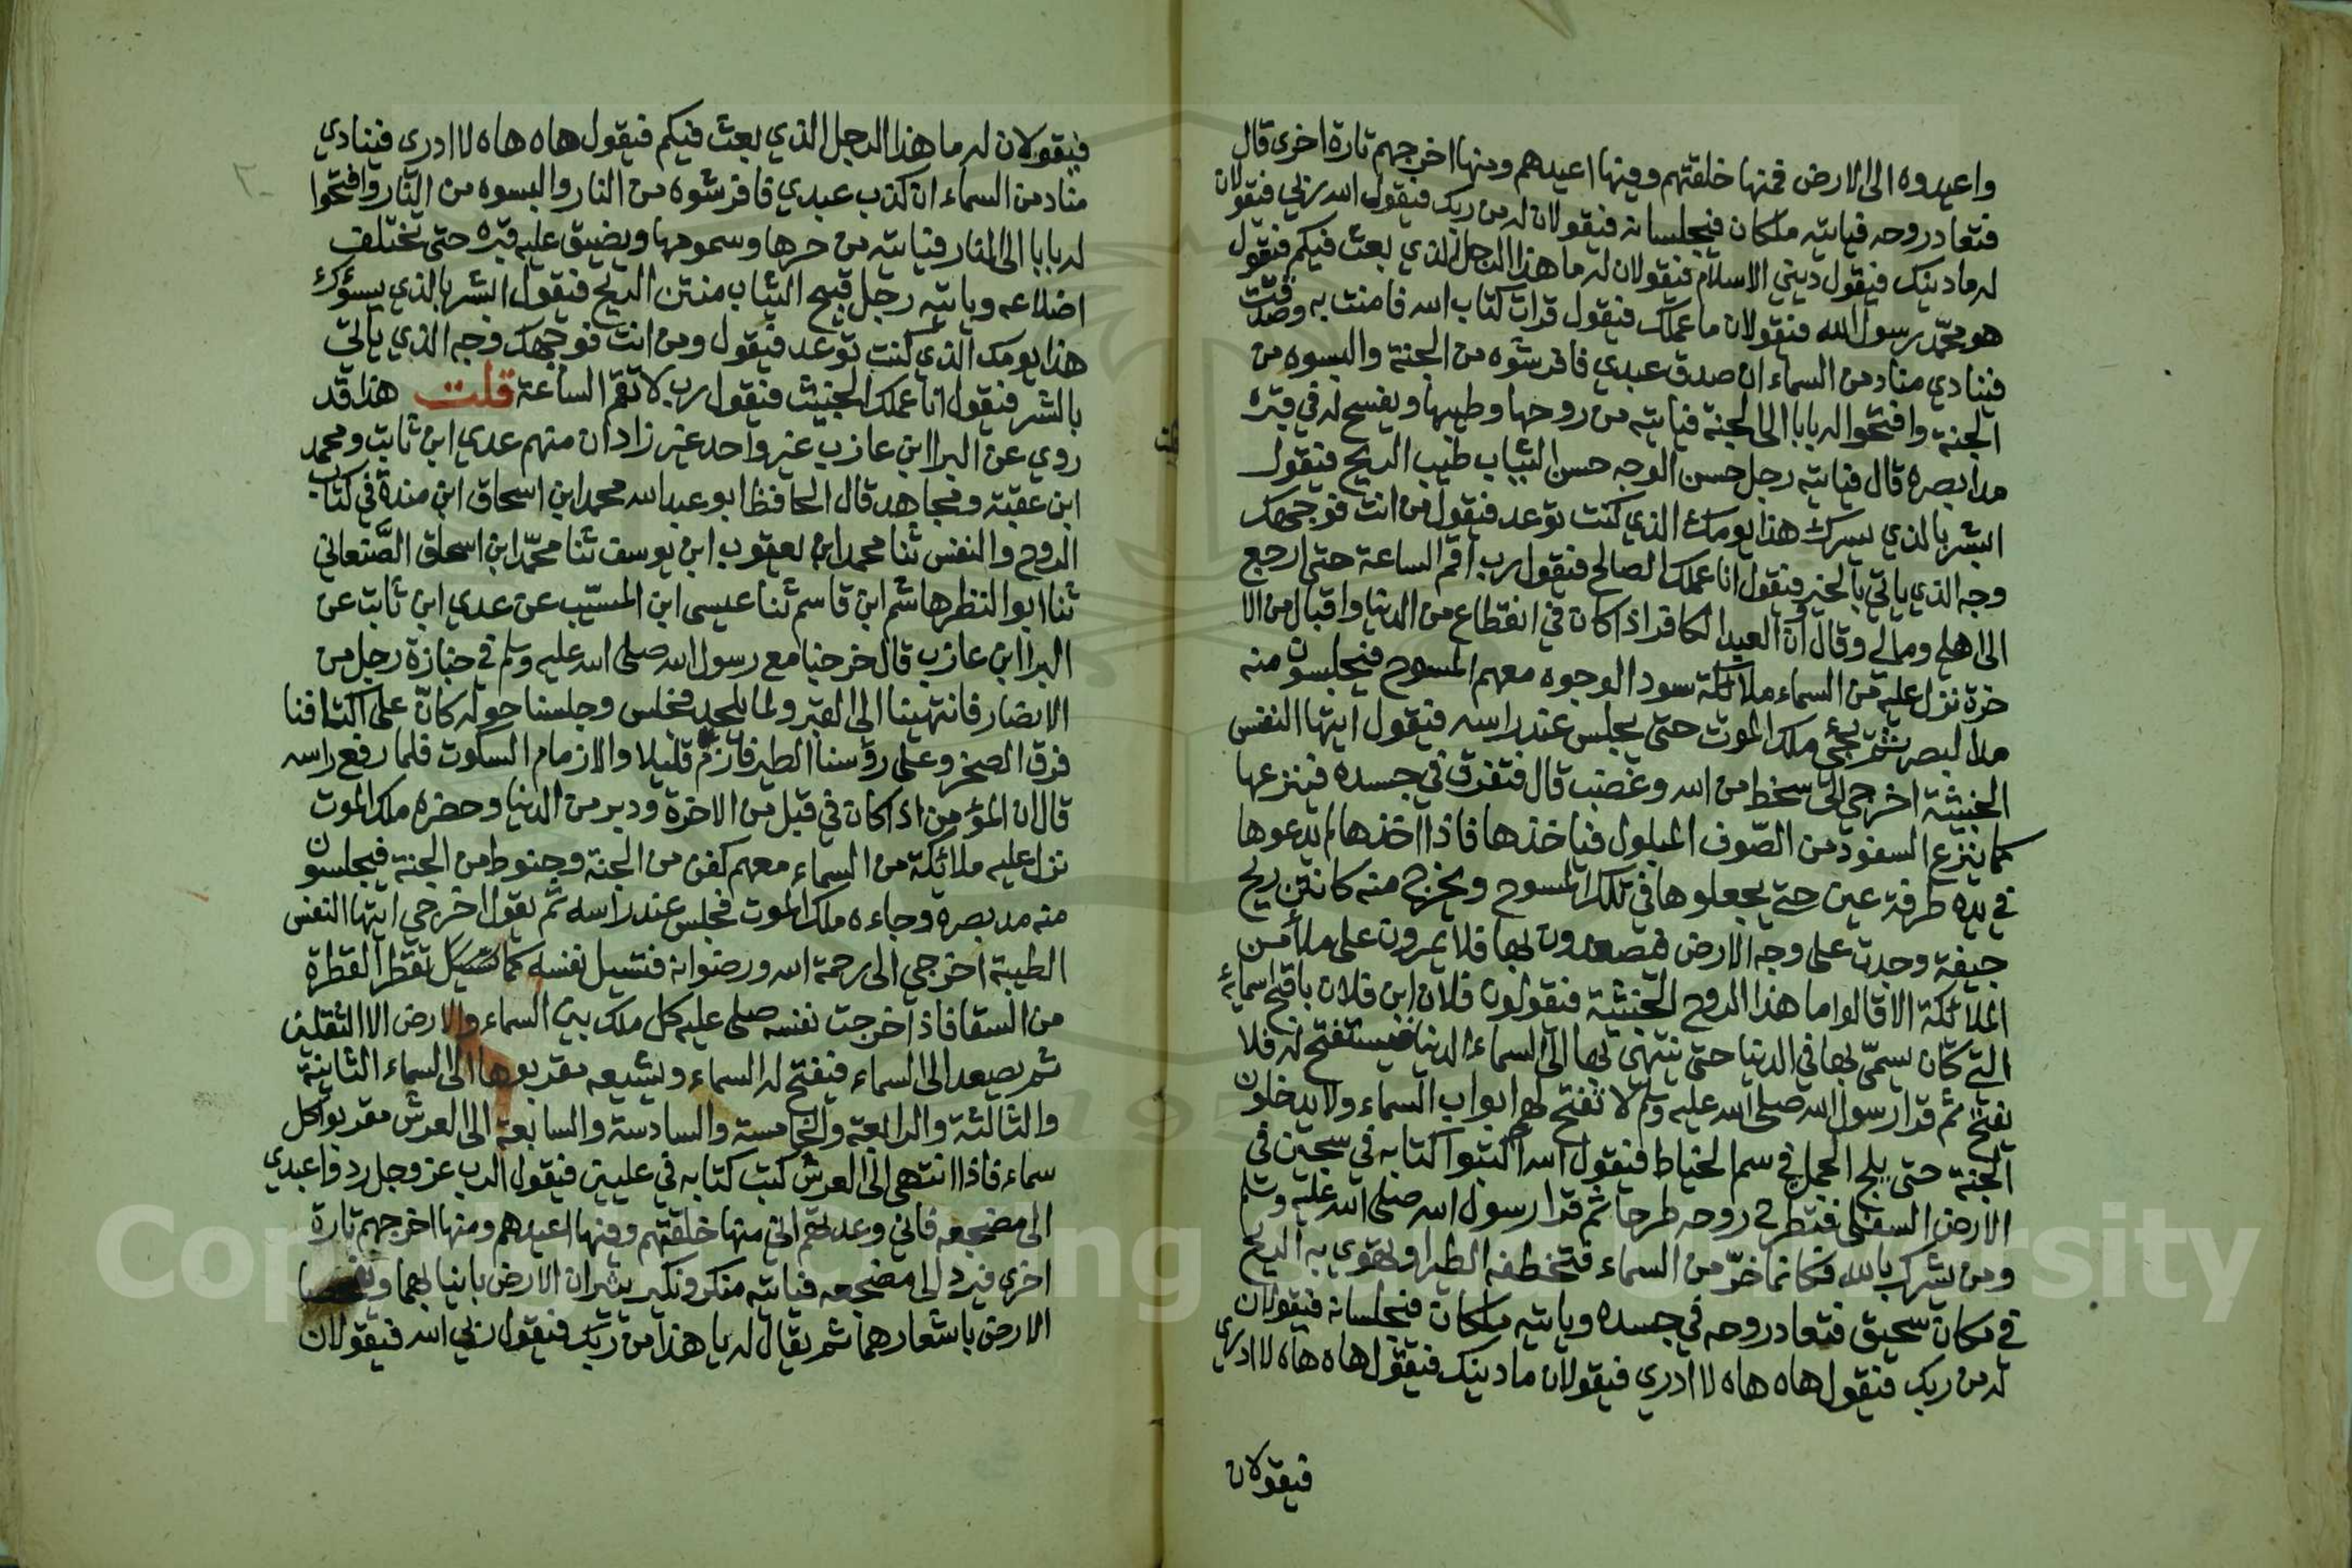 واعيدوه الى الارض فمنها خلقتهم وفيها اعيدهم ومنها اخرجهم تارة اخرى قال
فتعاد روحه فياتيه ملكان فيجلسانه فيقولان له من ربك فيقول الله ربي فيقولان
له ما دينك فيقول ديني الاسلام فيقولان له ما هذا الرجل الذي بعث فيكم فيقول
هو محمد رسول الله فيقولان ما عملك فيقول قرات كتاب الله فامنت به وصدقت
فينادي مناد من السماء ان صدق عبدي فافرشوه من الجنة والبسوه من
الجنة وافتحوا له بابا الى الجنة فياتيه من روحها وطيبها ويفسح له في قبره
مد بصره قال فياتيه رجل حسن الوجه حسن الثياب طيب الريح فيقول
ابشر بالذي يسرك هذا يومك الذي كنت توعد فيقول من انت فوجهك
وجه الذي ياتي بالخير فيقول انا عملك الصالح فيقول رب اقم الساعة حتى ارجع
الى اهلي ومالي وقال وان العبد الكافر اذا كان في انقطاع من الدنيا واقبال من الا
خرة نزل عليه من السماء ملائكة سود الوجوه معهم المسوح فيجلسون منه
مد البصر ثم يجئ ملك الموت حتى يجلس عند راسه فيقول ايتها النفس
الخبيثة اخرجي الى سخط من الله وغضب قال فتفرق في جسده فينزعها
كما ينزع السفود من الصوف المبلول فياخذها فاذا اخذها لم يدعوها
في يده طرفة عين حتى يجعلوها في تلك المسوح ويخرج منه كانتن ريح
جيفة وجدت على وجه الارض فيصعدون بها فلا يمرون على ملأ من
الملائكة الا قالوا ما هذا الروح الخبيثة فيقولون فلان ابن فلان باقبح اسمائه
التي كان يسمى بها في الدنيا حتى ينتهى بها الى السماء الدنيا فيستفتح له فلا
يفتح ثم قرا رسول الله صلى الله عليه وسلم لا تفتح لهم ابواب السماء ولا يدخلون
الجنة حتى يلج الجمل في سم الخياط فيقول الله اكتبوا كتابه في سجين في
الارض السفلى فتطرح روحه طرحا ثم قرا رسول الله صلى الله عليه وسلم
ومن يشرك بالله فكانما خر من السماء فتخطفه الطير او تهوي به الريح
في مكان سحيق فتعاد روحه في جسده وياتيه ملكان فيجلسانه فيقولان
له من ربك فيقول هاه هاه لا ادري فيقولان ما دينك فيقول هاه هاه لا ادري
فيقولان
فيقولان له ما هذا الرجل الذي بعث فيكم فيقول هاه هاه لا ادرى فينادي
مناد من السماء ان كذب عبدي فافرشوه من النار والبسوه من النار وافتحوا
له بابا الى النار فياتيه من حرها وسمومها ويضيق عليه قبره حتى تختلف
اضلاعه وياتيه رجل قبيح الثياب منتن الريح فيقول ابشر بالذي يسؤك
هذا يومك الذي كنت توعد فيقول ومن انت فوجهك وجه الذي ياتي
بالشر فيقول انا عملك الخبيث فيقول رب لا تقم الساعة قلت هذا قد
روي عن البرا ابن عازب غير واحد غير زادان منهم عدي ابن ثابت ومحمد
ابن عقبة ومجاهد قال الحافظ ابو عبد الله محمد ابن اسحاق ابن مندة في كتاب
الروح والنفس ثنا محمد ابن يعقوب ابن يوسف ثنا محمد ابن اسحاق الصنعاني
ثنا ابو النظر هاشم ابن قاسم ثنا عيسى ابن المسيب عن عدي ابن ثابت عن
البرا ابن عازب قال خرجنا مع رسول الله صلى الله عليه وسلم في جنازة رجل من
الانصار فانتهينا الى القبر ولما يلحد فجلس وجلسنا حوله كان على اكتافنا
فرق الصخر وعلى رؤسنا الطير فازم قليلا والازمام السكوت فلما رفع راسه
قال ان المؤمن اذا كان في قبل من الاخرة ودبر من الدنيا وحضره ملك الموت
نزل عليه ملائكة من السماء معهم كفن من الجنة وحنوط من الجنة فيجلسون
منه مد بصره وجاءه ملك الموت فجلس عند راسه ثم يقول اخرجي ايتها النفس
الطيبة اخرجي الى رحمة الله ورضوانه فتسيل نفسه كما تسيل تقطر القطرة
من السقا فاذا خرجت نفسه صلى عليه كل ملك بين السماء والارض الا الثقلين
ثم يصعد الى السماء فيفتح له السماء ويشيعه مقربوها الى السماء الثانية
والثالثة والرابعة والخامسة والسادسة والسابعة الى العرش مقربوا كل
سماء فاذا انتهى الى العرش كتب كتابه في عليين فيقول الرب عز وجل ردوا عبدي
الى مضجعه فاني وعدتهم اني منها خلقتهم وفيها اعيدهم ومنها اخرجهم تارة
اخرى فيرد الى مضجعه فياتيه منكر ونكير يثيران الارض بانيابهما
الارض باشعارهما ثم يقال له يا هذا من ربك فيقول ربي الله فيقولان
Copyright © King Saud University